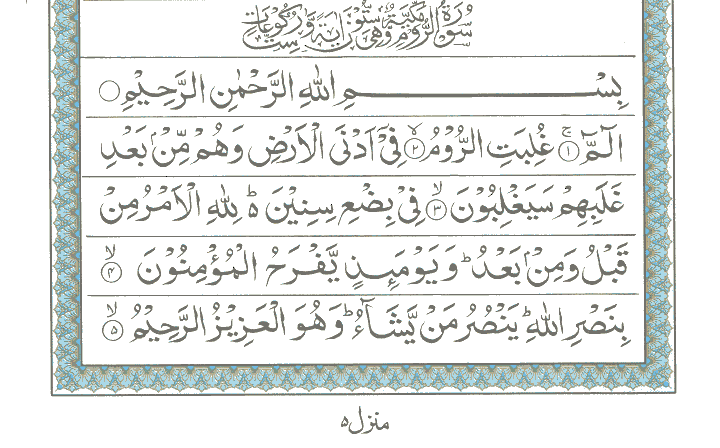 سُوْرَةُ الرُّوْمِ مَكِّيَّةٌ وَّهِيَ سِتُّوْنَ اٰيَةً وَّسِتُّ رُكُوْعَاتٍ
بِسْمِ اللّٰهِ الرَّحْمٰنِ الرَّحِيْمِ
الٓمّٓ ۚ﴿۱﴾ غُلِبَتِ الرُّوْمُ ۙ﴿۲﴾ فِيْٓ اَدْنَى الْاَرْضِ وَهُمْ مِّنْۢ بَعْدِ
غَلَبِهِمْ سَيَغْلِبُوْنَ ۙ﴿۳﴾ فِيْ بِضْعِ سِنِيْنَ ؕ۬ لِلّٰهِ الْاَمْرُ مِنْ
قَبْلُ وَمِنْۢ بَعْدُ ؕ وَيَوْمَئِذٍ يَّفْرَحُ الْمُؤْمِنُوْنَ ۙ﴿۴﴾
بِنَصْرِ اللّٰهِ ؕ يَنْصُرُ مَنْ يَّشَآءُ ؕ وَهُوَ الْعَزِيْزُ الرَّحِيْمُ ۙ﴿۵﴾
منزل ۵